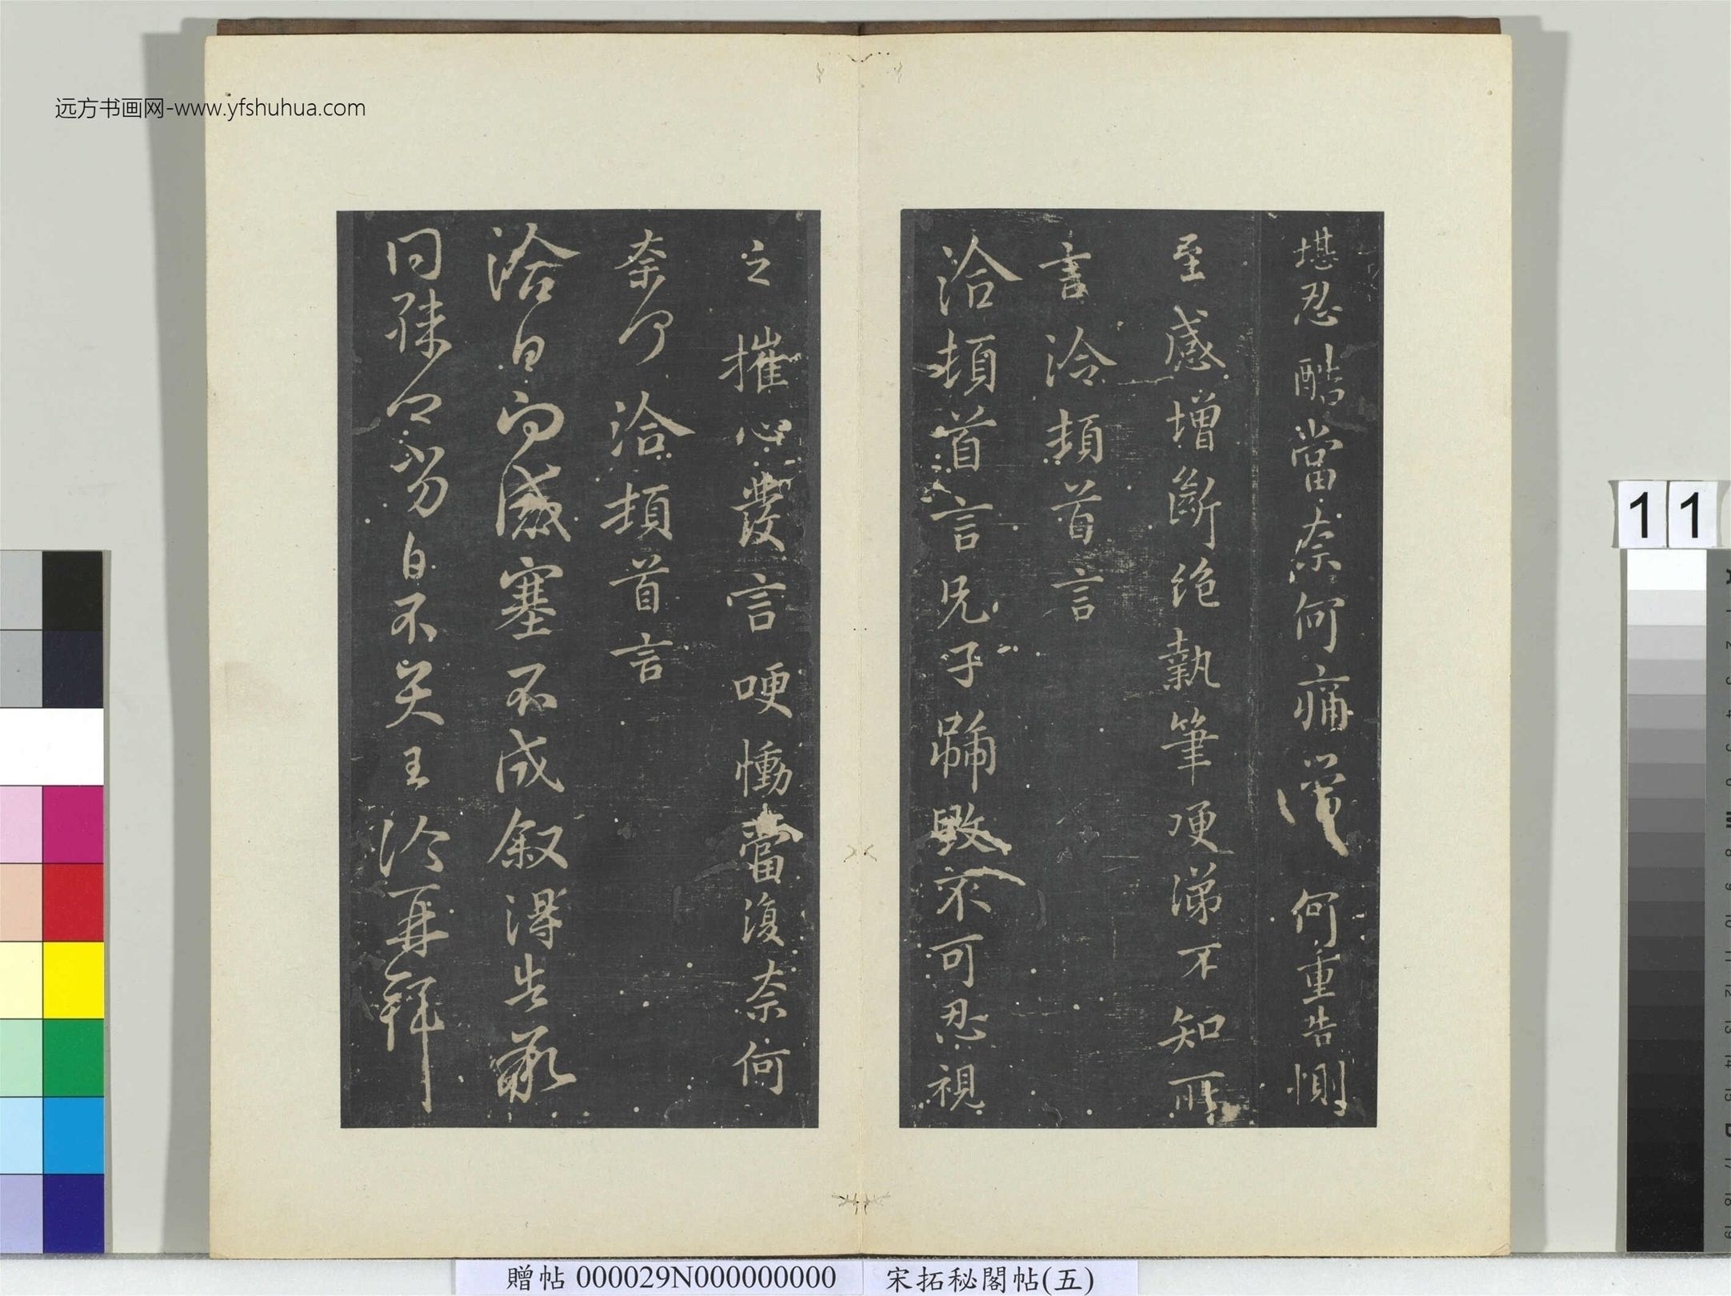 远方书画网-www.yfshuhua.com
堪忍酷當奈何痛 何重告惻
至感增斷絶執筆哽涕不知所
言洽頓首言
洽頓首言兄子號毀不可忍視
之摧心發言哽慟當復奈何
奈何洽頓首言
洽白 感塞不成叙得告
同 自不 王洽再拜
11
贈帖 000029N000000000 宋拓秘閣帖(五)